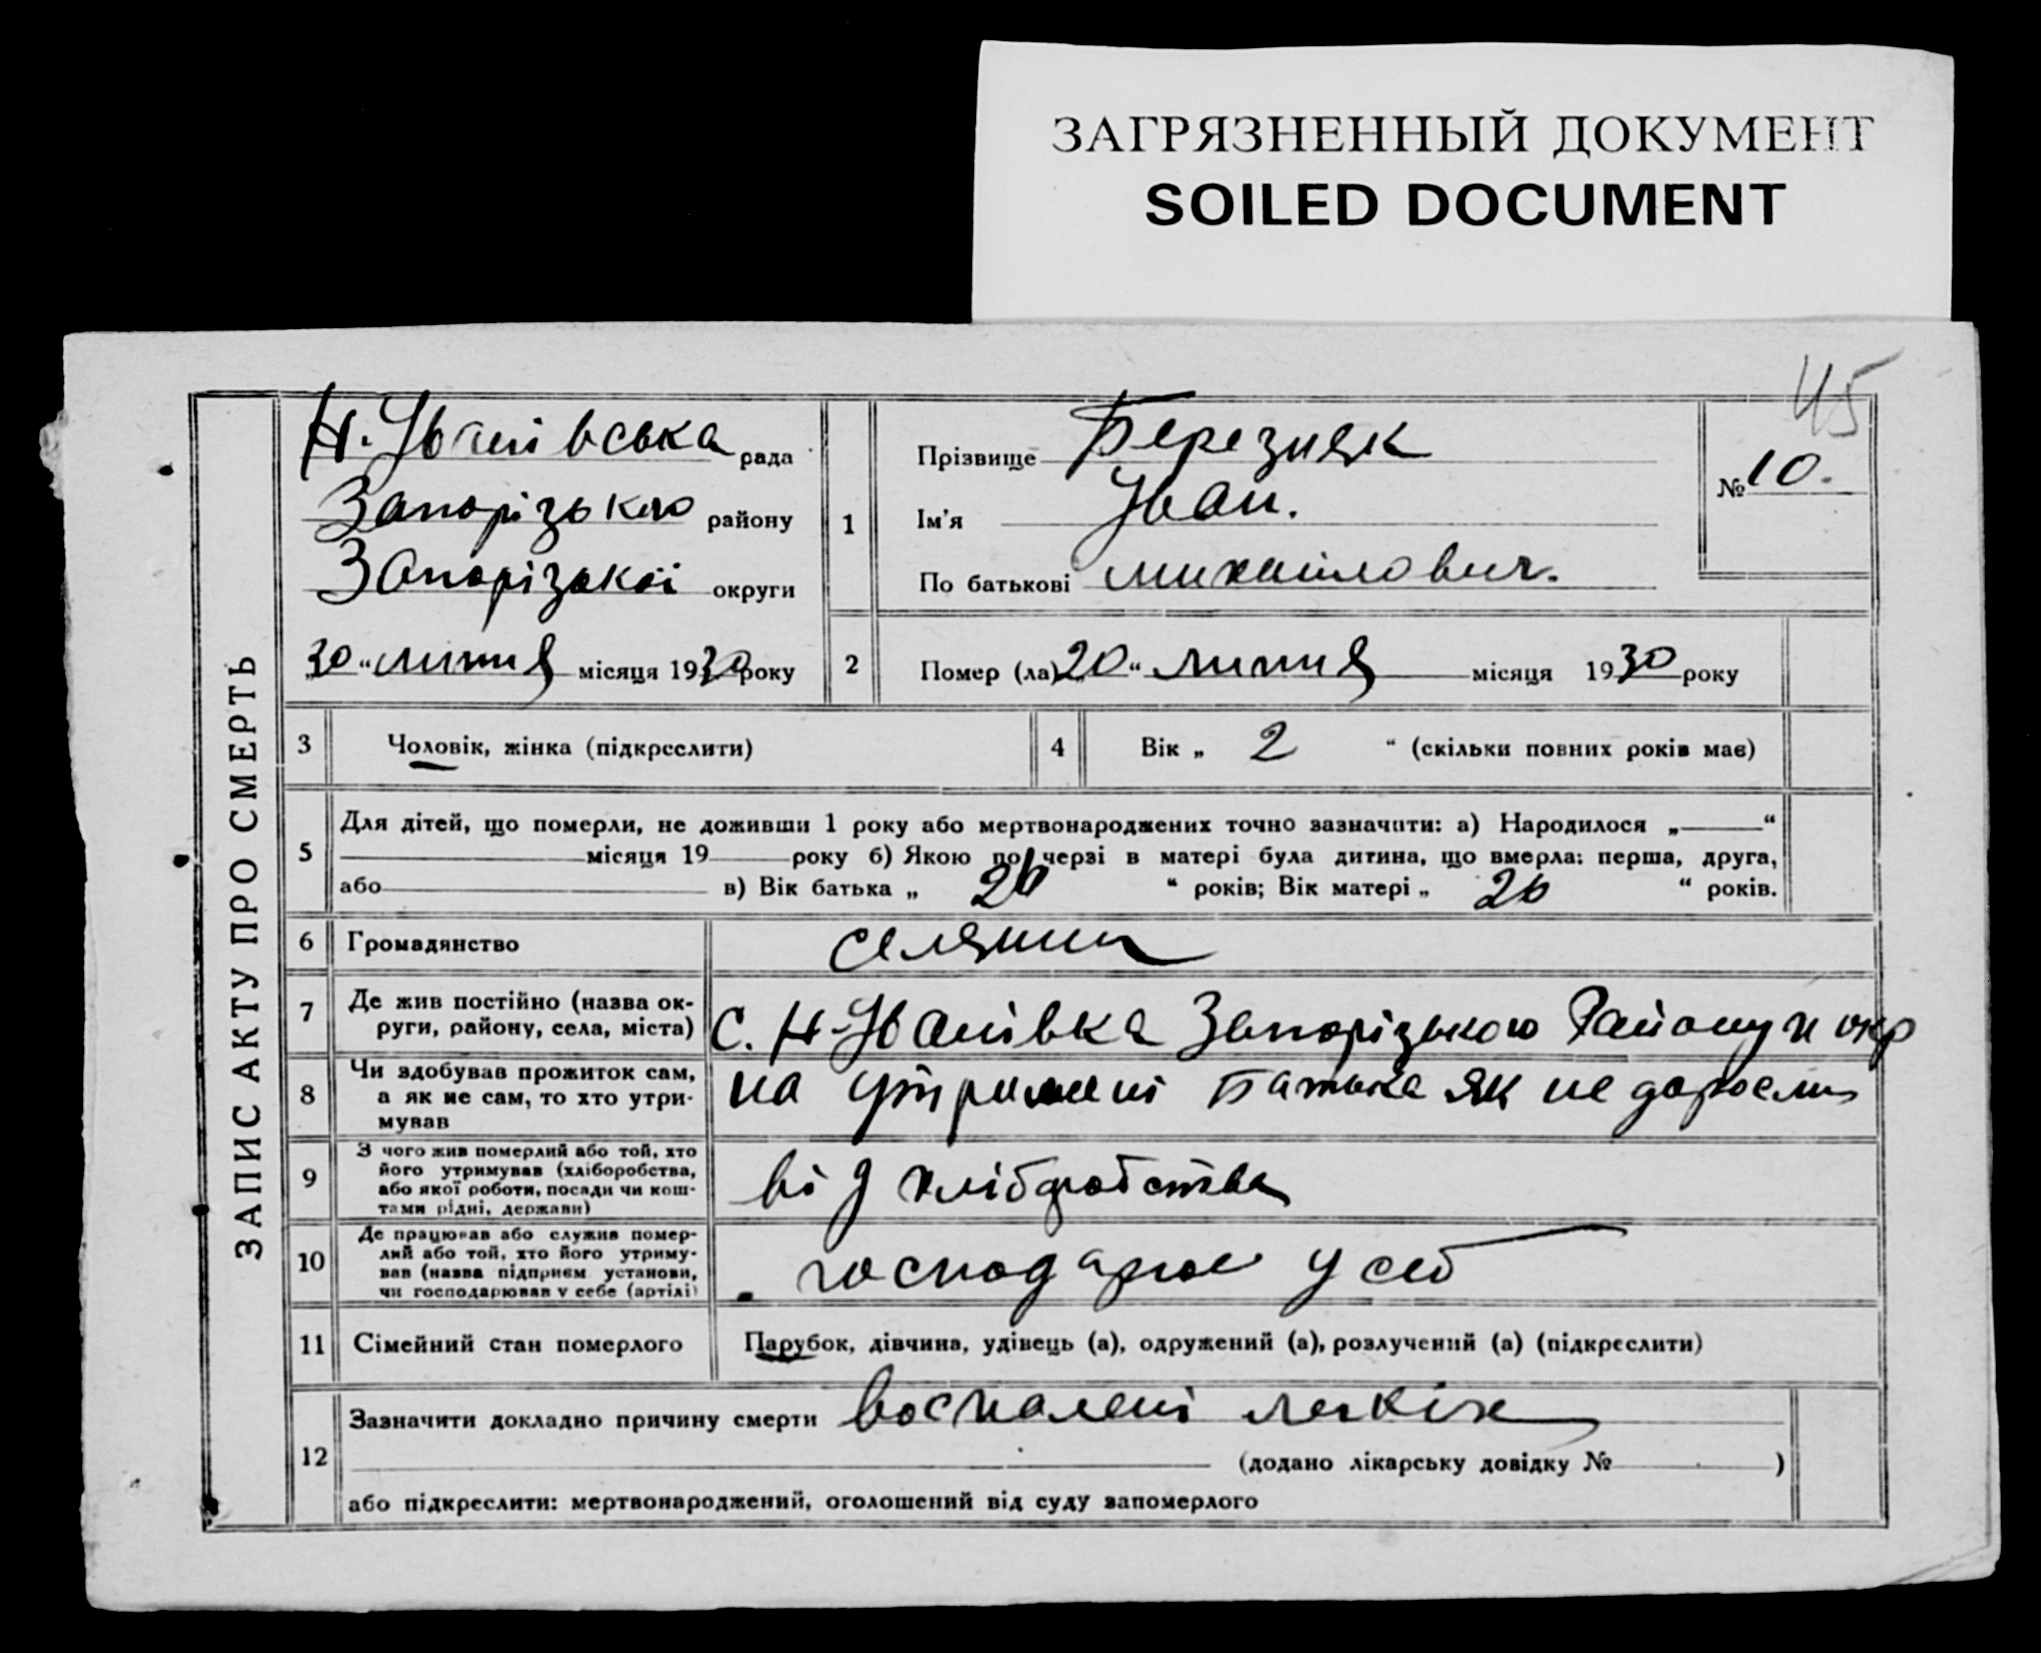 ЗАГРЯЗНЕННЫЙ ДОКУМЕНТ
SOILED DOCUMENT
45
ЗАПИС АКТУ ПРО СМЕРТЬ
Н. Іванівська рада
Запорізького району
Запорізької округи
"30" липня місяця 1930 року
1
Прізвище Березняк
Ім'я Іван.
По батькові Михайлович.
№ 10.
2 Помер (ла) "20" липня місяця 1930 року
3 Чоловік, жінка (підкреслити)
4 Вік „ 2 “ (скільки повних років має)
5 Для дітей, що померли, не доживши 1 року або мертвонароджених точно зазначити: а) Народилося „——“
місяця 19 року б) Якою по черзі в матері була дитина, що вмерла: перша, друга,
або в) Вік батька „ 26 “ років; Вік матері „ 26 “ років.
6 Громадянство селянин
7 Де жив постійно (назва округи, району, села, міста) с. Н-Іванівка Запорізького Району и окр
8 Чи здобував прожиток сам, а як не сам, то хто утримував на утримані батька як не доросли
9 З чого жив померлий або той, хто його утримував (хліборобства, або якої роботи, посади чи коштами рідні, держави) від хліборобства
10 Де працював або служив померлий або той, хто його утримував (назва підприєм установи, чи господарював у себе (артілі) господарює у себ
11 Сімейний стан померлого Парубок, дівчина, удівець (а), одружений (а), розлучений (а) (підкреслити)
12 Зазначити докладно причину смерти воспалені легкіх
(додано лікарську довідку № )
або підкреслити: мертвонароджений, оголошений від суду запомерлого